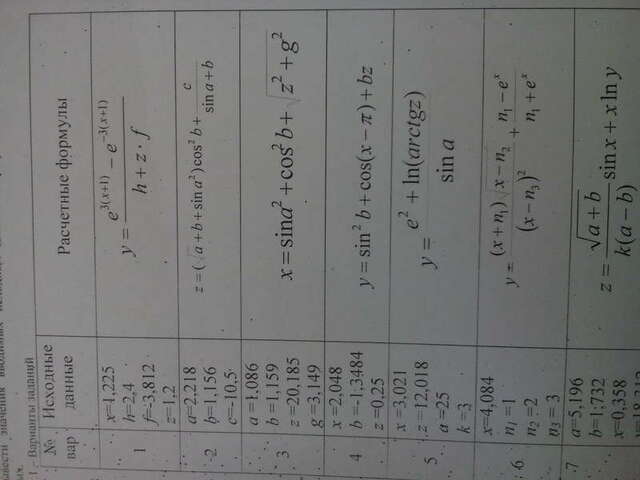 1 – Варианты заданий
№ вар
Исходные данные
Расчетные формулы
1
x=1,225
h=2,4
f=-3,812
z=1,2
y = (e^{3(x+1)} – e^{-3(x+1)}) / (h + z · f)
2
a=2,218
b=1,156
c=-10,5
z = (√a + b + sin a²) cos² b + c / (sin a + b)
3
a =1,086
b =1,159
z =20,185
g =3,149
x = sin a² + cos² b + √(z² + g²)
4
x =2,048
b =-1,3484
z =0,25
y = sin² b + cos(x – π) + bz
5
x =3,021
z =12,018
a =25
k =3
y = (e² + ln(arctgz)) / sin a
6
x=4,084
n₁ =1
n₂ =2
n₃ = 3
y = (x + n₁)√(x – n₂) / (x – n₃)² + (n₁ – eˣ) / (n₁ + eˣ)
7
a=5,196
b=1,732
x=0,358
z = √(a + b) / k(a – b) sin x + x ln y